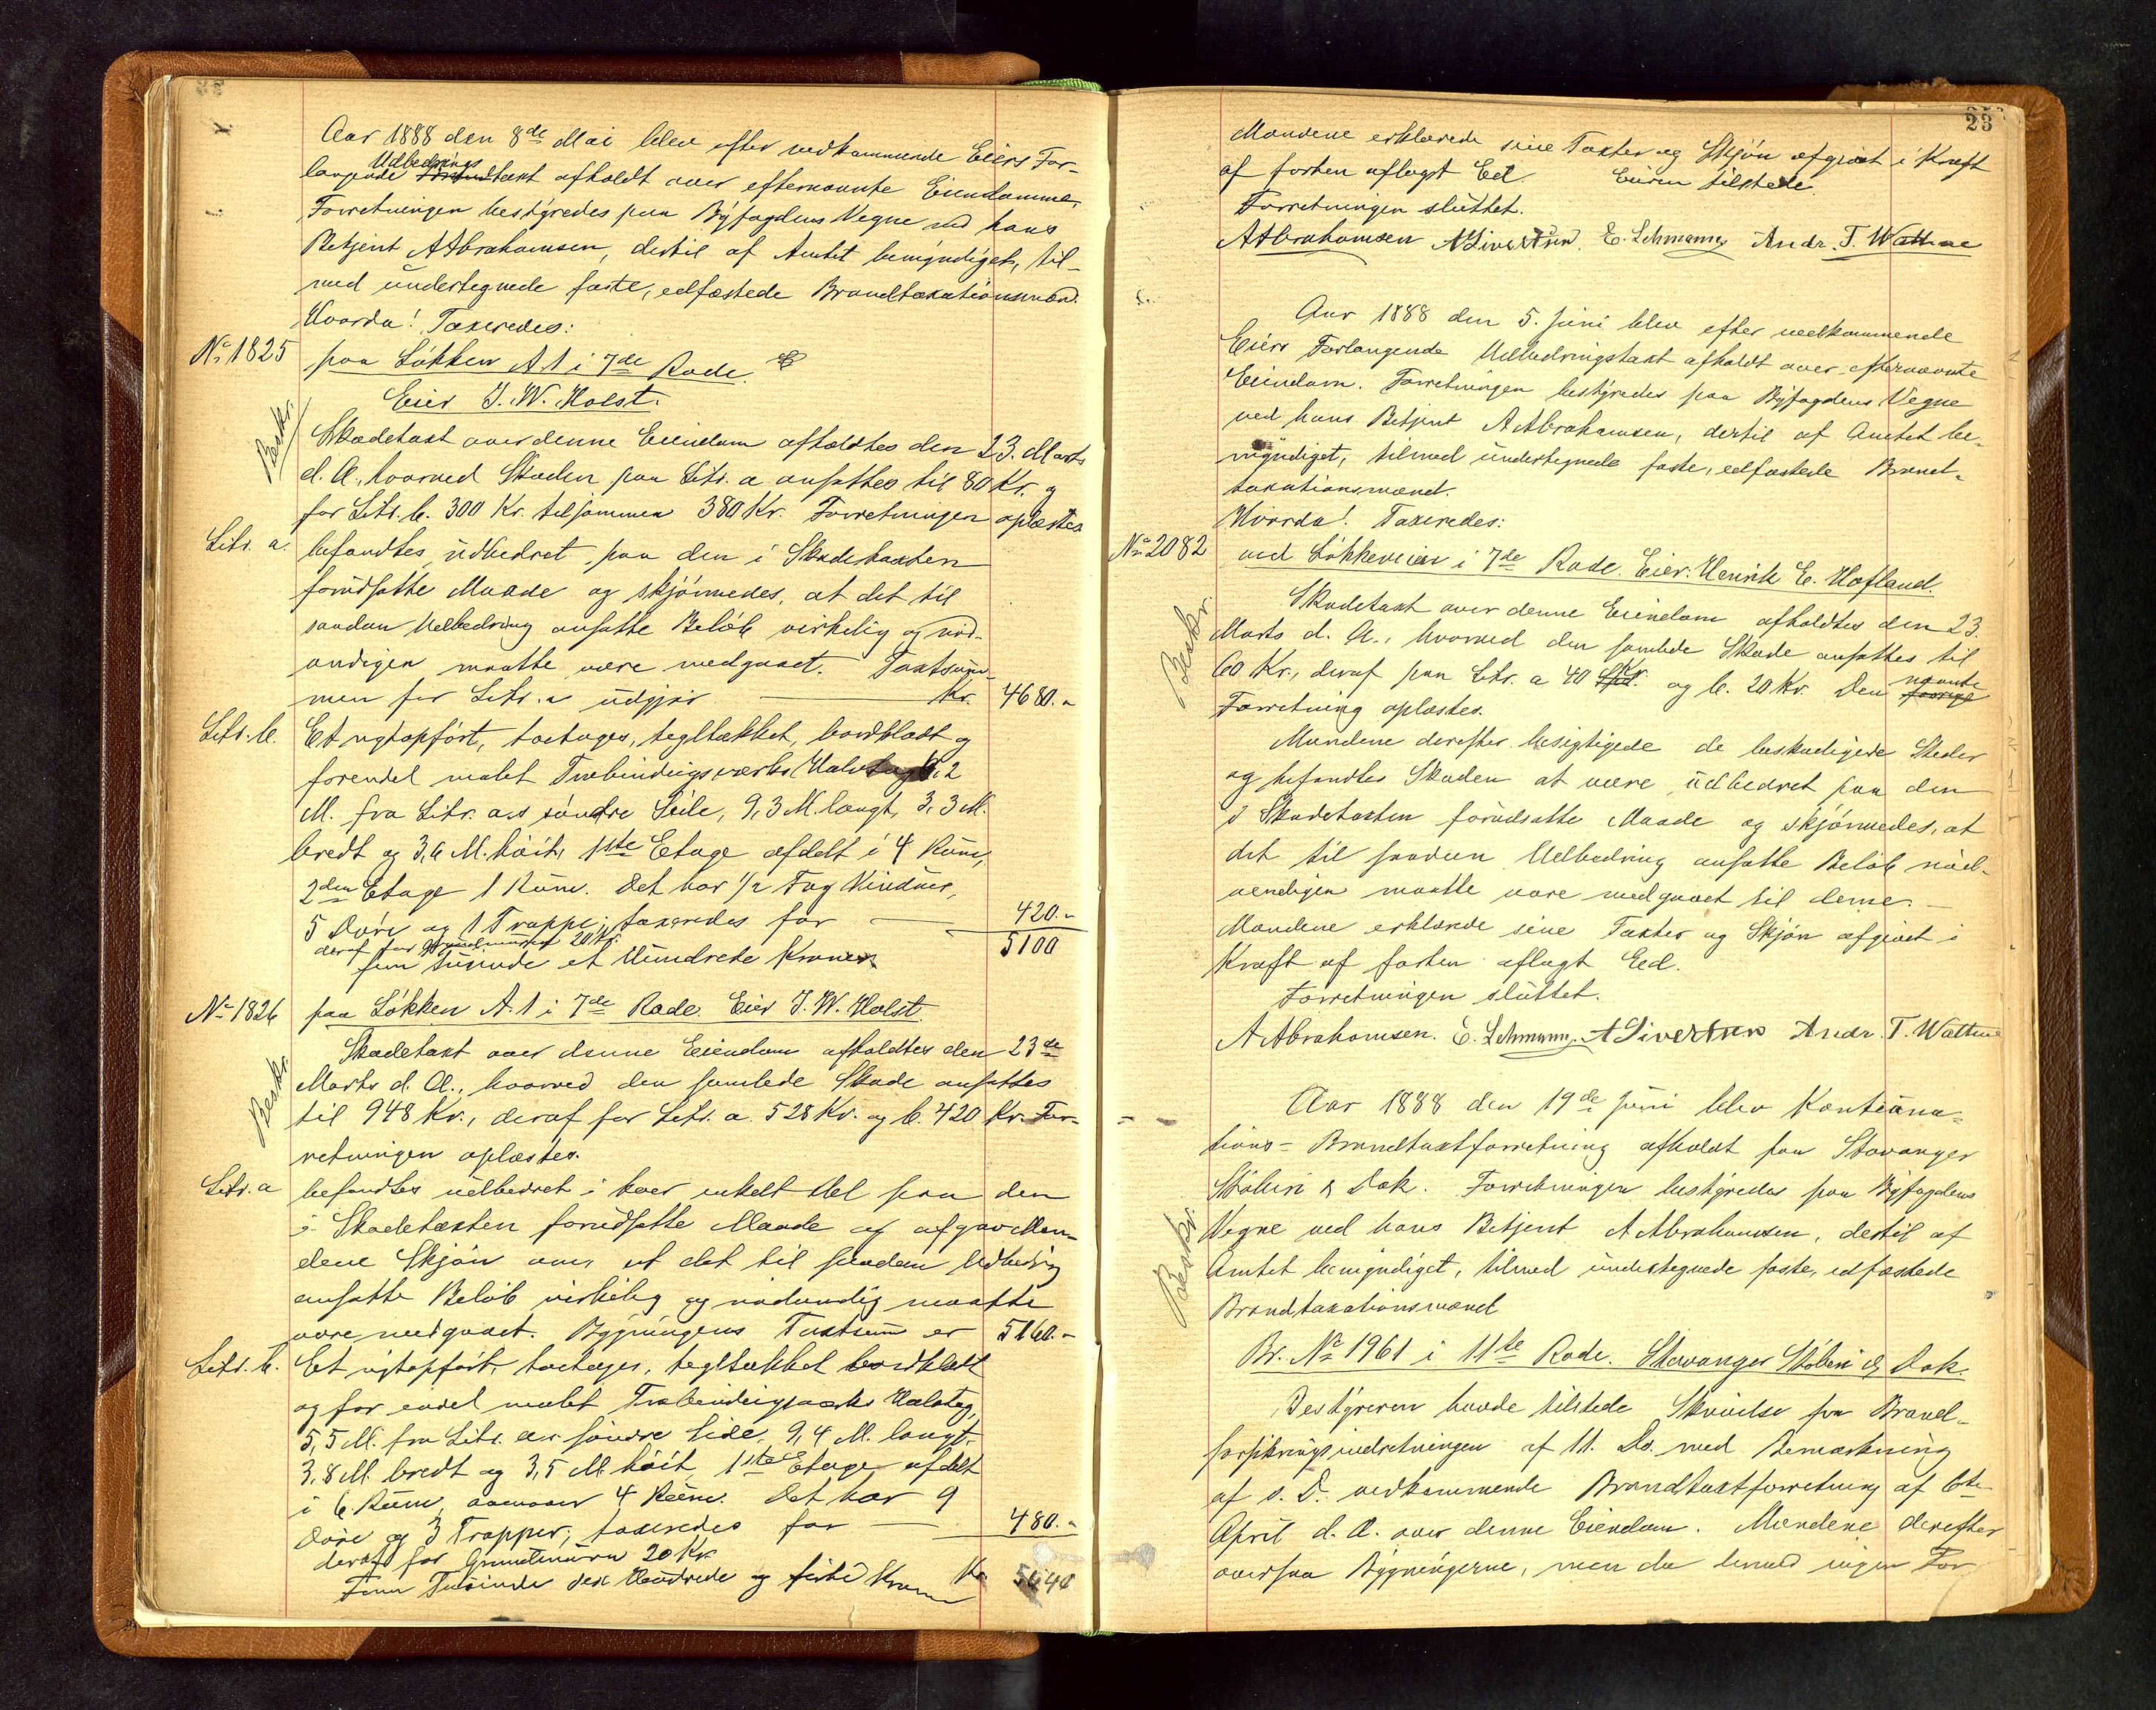 Aar 1888 den 8de Mai blev efter vedkommende Eiers For-
langende Udbedringstaxt afholdt over efternævnte Eiendomme.
Forretningen bestyredes paa Byfogdens Vegne ved hans
Betjent A Abrahamsen, dertil af Amtet bemyndiget, til-
med undertegnede faste, edfæstede Brandtaxationsmænd.
Hvorda! Taxeredes:
No 1825 paa Løkken A 1 i 7de Rode.
Eier J. W. Holst.
Beskr.
Skadetaxt over denne Eiendom afholdtes den 23. Marts
d. A., hvorved Skaden paa Litr. a ansattes til 80 Kr. og
for Litr. b. 300 Kr. tilsammen 380 Kr. Forretningen oplæstes
Litr. a. befandtes udbedret paa den i Skadetaxten
forudsatte Maade og skjønnedes, at det til
saadan Udbedring ansatte Beløb virkelig og nød-
vendigen maatte være medgaaet. Taxtsum-
men for Litr. a udgjør Kr. 4680.-
Litr. b. Et nyt opført, toetages, tegltækket, bordklædt og
forendel malet Træbindingsværks Halvtag 6,2
M. fra Litr. a.s søndre Side, 9,3 M. langt, 3,3 M.
bredt og 3,6 M. høit, 1ste Etage afdelt i 4 Rum,
2den Etage 1 Rum. Det har 1/2 Fag Vinduer,
5 Døre og 1 Trappe; taxeredes for 420.-
deraf for Grundmuren 20 Kr.
fem tusinde et Hundrede Kroner 5100
No 1826 paa Løkken A. 1 i 7de Rode. Eier J. W. Holst.
Beskr.
Skadetaxt over denne Eiendom afholdtes den 23de
Marts d. A., hvorved den samlede Skade ansattes
til 948 Kr., deraf for Litr. a. 528 Kr. og b. 420 Kr. For-
retningen oplæstes.
Litr. a befandtes udbedret i hver enkelt Del paa den
i Skadetaxten forudsatte Maade og afgav Mæn-
dene Skjøn over at det til saadan Udbedring
ansatte Beløb virkelig og nødvendig maatte
være medgaaet. Bygningens Taxtsum er 5160.-
Litr. b. Et nyt opført, toetages, tegltækket bordklædt
og for endel malet Træbindingsværks Halvtag,
5,5 M. fra Litr. a.s søndre Side, 9,4 M. langt,
3,8 M. bredt og 3,5 M. høit, 1ste Etage afdelt
i 6 Rum, ovenover 4 Rum. Det har 9
Døre og 3 Trapper; taxeredes for 480.-
deraf for Grundmuren 20 Kr
Fem Tusinde sex Hundrede og firti Kroner Kr 5640
23
Mændene erklærede sine Taxter og Skjøn afgivet i Kraft
af forhen aflagt Ed. Eieren tilstede.
Forretningen sluttet.
A Abrahamsen A Sivertsen. E. Lehmann, Andr. T. Wathne
Aar 1888 den 5. Juni blev efter vedkommende
Eiers Forlangende Udbedringstaxt afholdt over efternævnte
Eiendom. Forretningen bestyredes paa Byfogdens Vegne
ved hans Betjent A Abrahamsen, dertil af Amtet be-
myndiget, tilmed undertegnede faste, edfæstede Brand-
taxationsmænd.
Hvorda! Taxeredes:
No 2082 ved Løkkeveien i 7de Rode. Eier: Henrik E. Hafland.
Beskr.
Skadetaxt over denne Eiendom afholdtes den 23.
Marts d. A., hvorved den samlede Skade ansattes til
60 Kr., deraf paa Litr. a 40 Kr. og b. 20 Kr. Den nævnte
Forretning oplæstes.
Mændene derefter besigtigede de beskadigede Steder
og befandtes Skaden at være udbedret paa den
i Skadetaxten forudsatte Maade og skjønnedes, at
det til saadan Udbedring ansatte Beløb nød-
vendigen maatte være medgaaet til denne. -
Mændene erklærede sine Taxter og Skjøn afgivet i
Kraft af forhen aflagt Ed.
Forretningen sluttet.
A Abrahamsen. E. Lehmann. A Sivertsen Andr. T. Wathne
Aar 1888 den 19de Juni blev Kontinua-
tions- Brandtaxtforretning afholdt paa Stavanger
Støberi & Dok. Forretningen bestyredes paa Byfogdens
Beskr.
Vegne ved hans Betjent A Abrahamsen, dertil af
Amtet bemyndiget, tilmed undertegnede faste, edfæstede
Brandtaxationsmænd
Br. No 1961 i 11te Rode. Stavanger Støberi & Dok.
Bestyreren havde tilstede Skrivelse fra Brand-
forsikringsindretningen af 11. Ds. med Bemærkning
af s. D. vedkommende Brandtaxtforretning af 6te
April d. A. over denne Eiendom. Mændene derefter
oversaa Bygningerne, men da herved ingen For